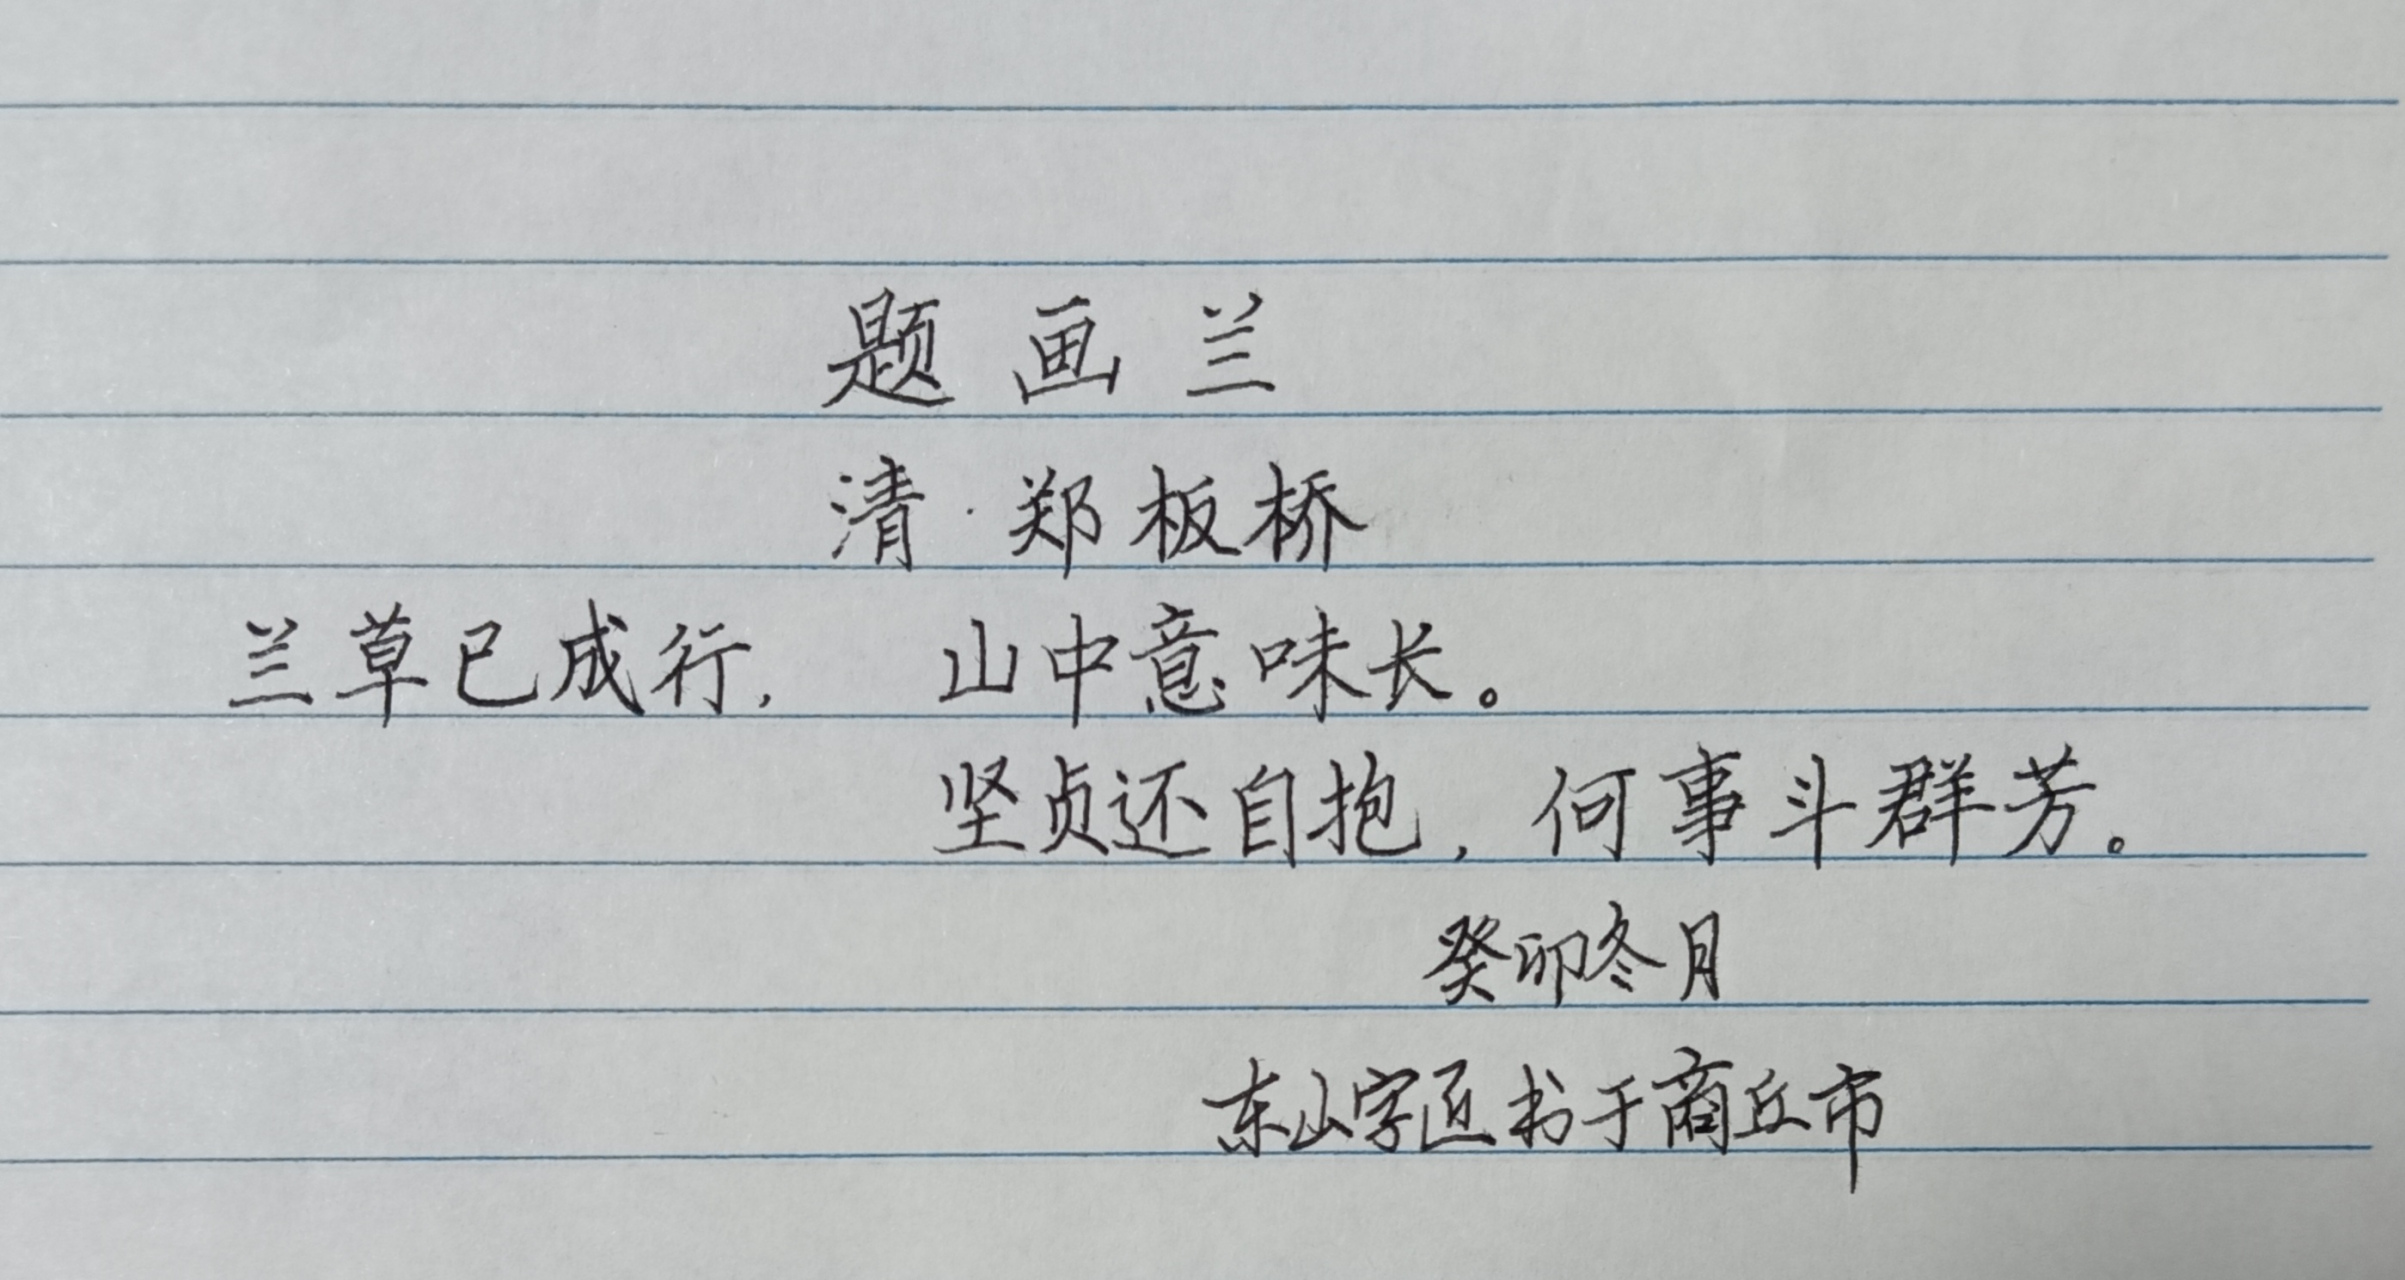 题画兰
清·郑板桥
兰草已成行, 山中意味长。
坚贞还自抱,何事斗群芳。
癸卯冬月
东山字匠书于商丘市